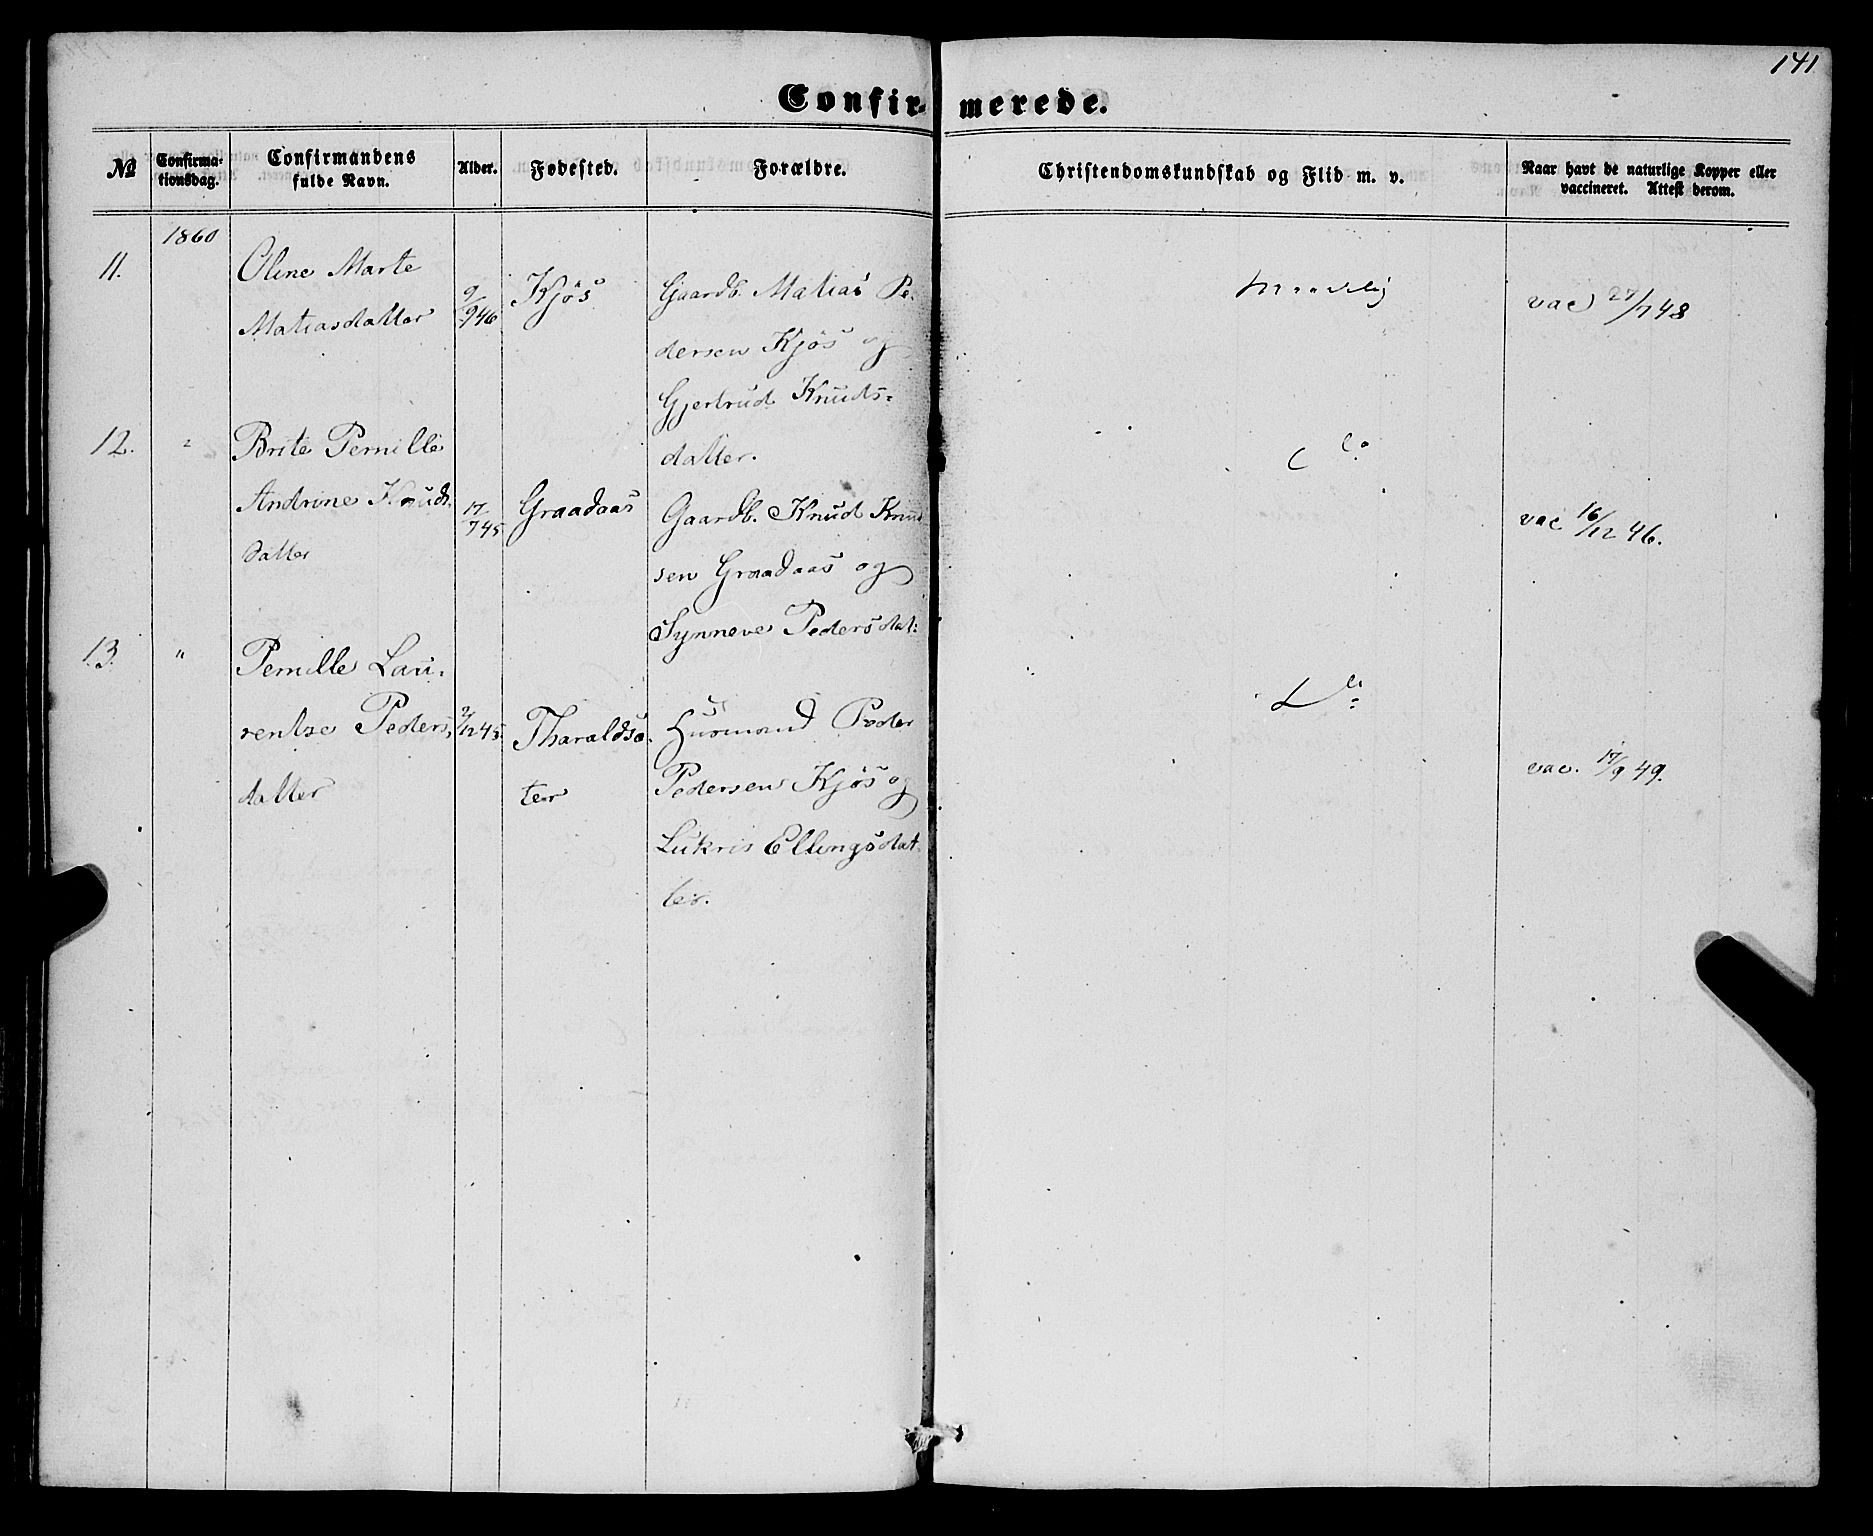 141
Confirmerede.
No
Confirma-
tionsdag.
Confirmandens
fulde Navn.
Alder.
Fødested.
Forældre.
Christendomskundskab og Flid m. v.
Naar havt de naturlige Kopper eller
vaccineret. Attest derom.
1860
11.
Oline Marte
Matiasdatter
9/9 46
Kjøs
Gaardb. Matias Pe-
dersen Kjøs og
Gjertrud Knuds=
datter.
vac 27/7 48
12.
"
Brite Pernille
Andrine Knuds-
datter
17/7 45
Graadaas
Gaardb. Knud Knud
sen Graadaas og
Synneve Pedersdat:
vac 16/12 46.
13.
"
Pernille Lau-
rentse Peders-
datter
2/12 45.
Tharaldsæ-
ter
Huusmand Peder
Pedersen Kjøs og
Lukris Ellingsdat-
ter.
vac. 17/9 49.